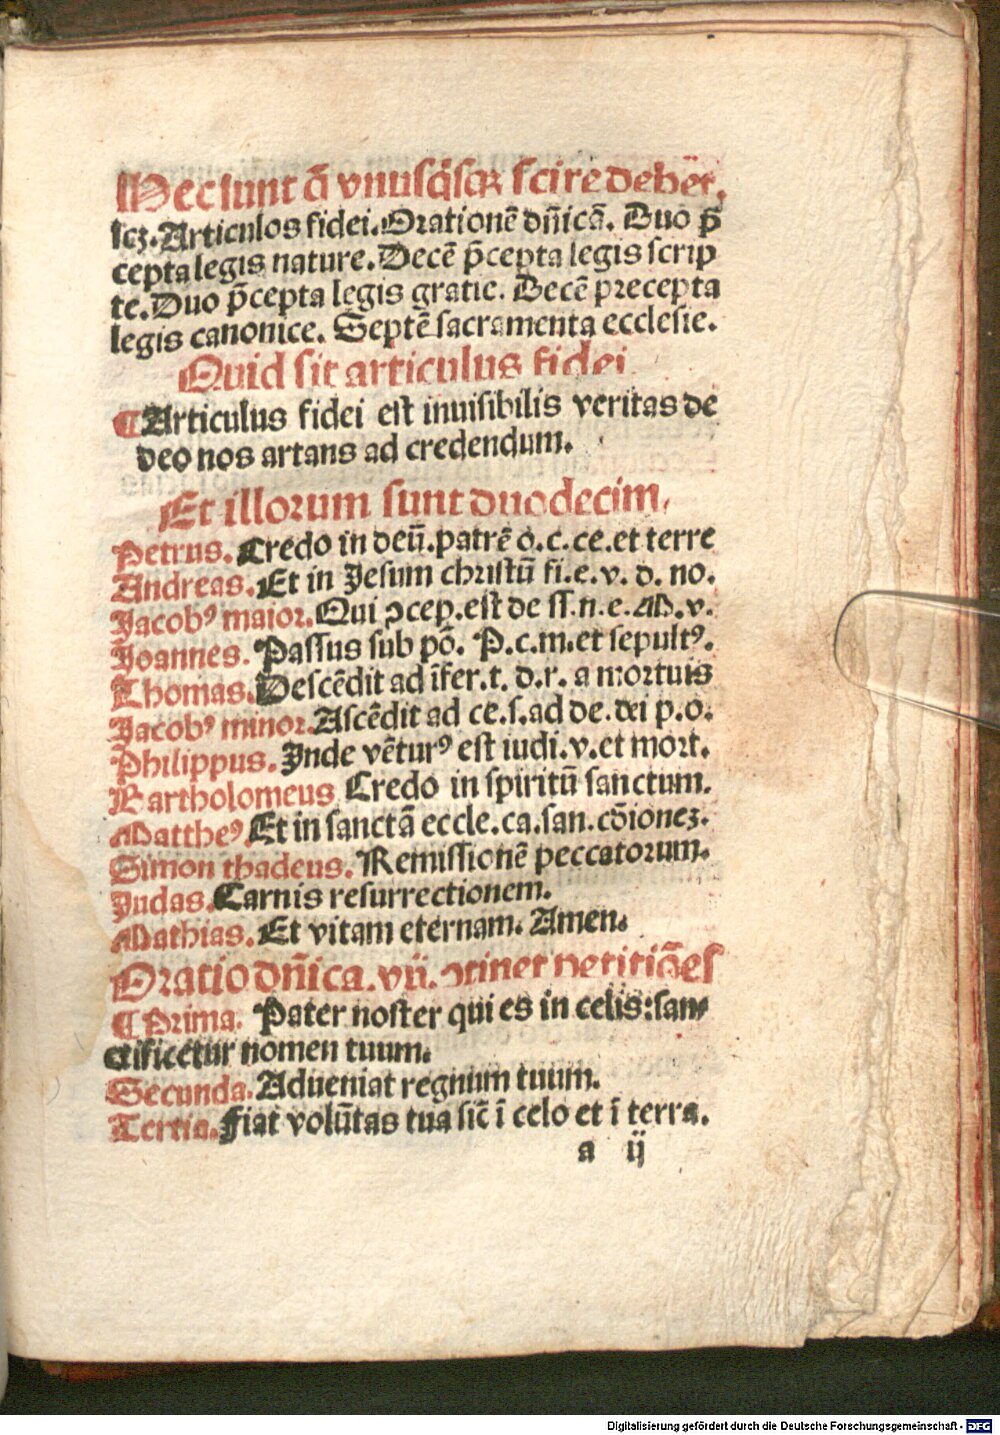 Hec sunt q̄ vnusq̄sqꝫ scire debet.
scꝫ. Articulos fidei. Orationē dn̄icā. Duo p̄
cepta legis nature. Decē p̄cepta legis scrip
te. Duo p̄cepta legis gratie. Decē precepta
legis canonice. Septē sacramenta ecclesie.
Quid sit articulus fidei
¶ Articulus fidei est inuisibilis veritas de
deo nos artans ad credendum.
Et illorum sunt duodecim.
Petrus. Credo in deū. patrē o. c. ce. et terre
Andreas. Et in Jesum christū fi. e. v. d. no.
Jacobꝰ maior. Qui ꝯcep. est de ss. n. e. M. v.
Joannes. Passus sub pō. P. c. m. et sepultꝰ.
Thomas. Descēdit ad īfer. t. d. r. a mortuis
Jacobꝰ minor. Ascēdit ad ce. s. ad de. dei p. o.
Philippus. Inde vēturꝰ est iudi. v. et mort.
Bartholomeus Credo in spiritū sanctum.
Mattheꝰ Et in sanctā eccle. ca. san. cōioneꝫ.
Simon thadeus. Remissionē peccatorum.
Judas. Carnis resurrectionem.
Mathias. Et vitam eternam. Amen.
Oratio dn̄ica. vii. ꝯtinet petitiōes
¶ Prima. Pater noster qui es in celis: san-
ctificetur nomen tuum.
Secunda. Adueniat regnum tuum.
Tertia. Fiat volūtas tua sic̄ ī celo et ī terra.
a ij
Digitalisierung gefördert durch die Deutsche Forschungsgemeinschaft - DFG